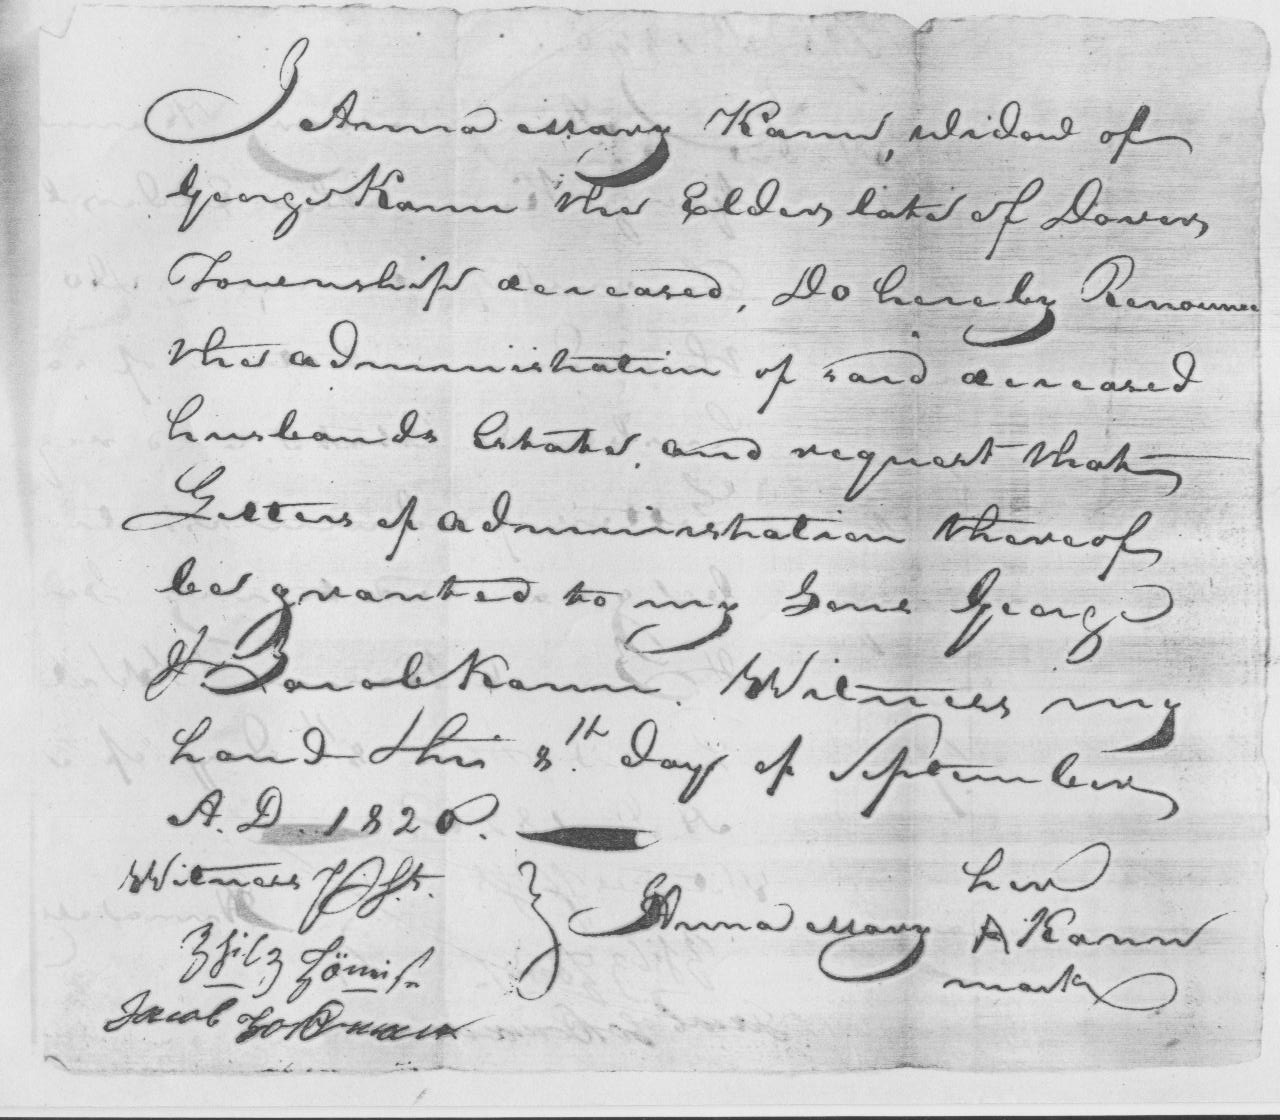 I Anna Mary Kann, Widow of
George Kann the Elder late of Dover
Township deceased, Do hereby Renounce
the administration of said deceased
husbands Estate, and request that
Letters of administration thereof
be granted to my Sons George
& Jacob Kann. Witness my
hand this 8th. day of September
A. D. 1820.
Witness
her
Anna Mary A Kann
mark
Jacob